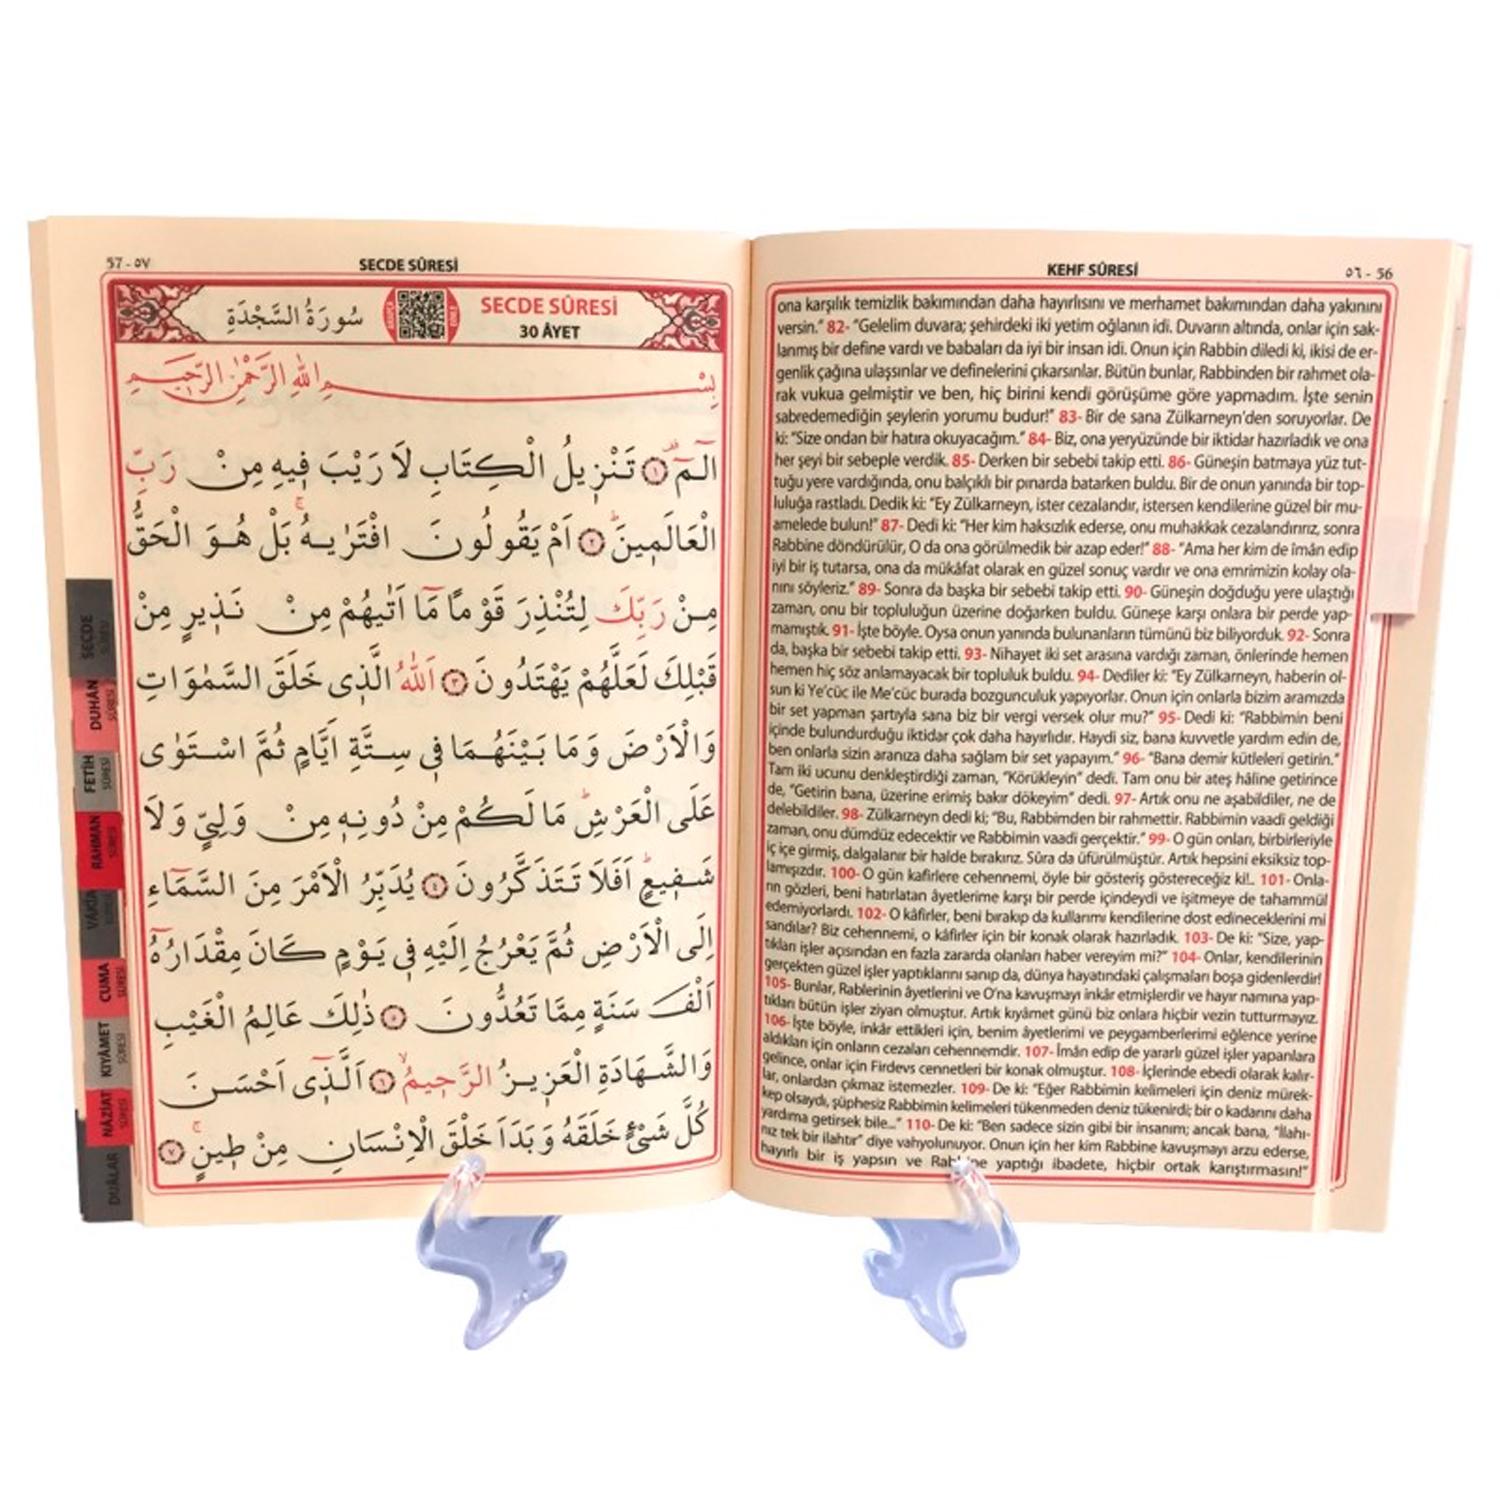 ٥٦ - 56
KEHF SÛRESİ
ona karşılık temizlik bakımından daha hayırlısını ve merhamet bakımından daha yakınını
versin." 82- "Gelelim duvara; şehirdeki iki yetim oğlanın idi. Duvarın altında, onlar için sak-
lanmış bir define vardı ve babaları da iyi bir insan idi. Onun için Rabbin diledi ki, ikisi de er-
genlik çağına ulaşsınlar ve definelerini çıkarsınlar. Bütün bunlar, Rabbinden bir rahmet ola-
rak vukua gelmiştir ve ben, hiç birini kendi görüşüme göre yapmadım. İşte senin
sabredemediğin şeylerin yorumu budur!" 83- Bir de sana Zülkarneyn'den soruyorlar. De
ki: "Size ondan bir hatıra okuyacağım." 84- Biz, ona yeryüzünde bir iktidar hazırladık ve ona
her şeyi bir sebeple verdik. 85- Derken bir sebebi takip etti. 86- Güneşin batmaya yüz tut-
tuğu yere vardığında, onu balçıklı bir pınarda batarken buldu. Bir de onun yanında bir top-
luluğa rastladı. Dedik ki: "Ey Zülkarneyn, ister cezalandır, istersen kendilerine güzel bir mu-
amelede bulun!" 87- Dedi ki: "Her kim haksızlık ederse, onu muhakkak cezalandırırız, sonra
Rabbine döndürülür, O da ona görülmedik bir azap eder!" 88- "Ama her kim de îmân edip
iyi bir iş tutarsa, ona da mükâfat olarak en güzel sonuç vardır ve ona emrimizin kolay ola-
nını söyleriz." 89- Sonra da başka bir sebebi takip etti. 90- Güneşin doğduğu yere ulaştığı
zaman, onu bir topluluğun üzerine doğarken buldu. Güneşe karşı onlara bir perde yap-
mamıştık. 91- İşte böyle. Oysa onun yanında bulunanların tümünü biz biliyorduk. 92- Sonra
da, başka bir sebebi takip etti. 93- Nihayet iki set arasına vardığı zaman, önlerinde hemen
hemen hiç söz anlamayacak bir topluluk buldu. 94- Dediler ki: "Ey Zülkarneyn, haberin ol-
sun ki Ye'cüc ile Me'cüc burada bozgunculuk yapıyorlar. Onun için onlarla bizim aramızda
bir set yapman şartıyla sana biz bir vergi versek olur mu?" 95- Dedi ki: "Rabbimin beni
içinde bulundurduğu iktidar çok daha hayırlıdır. Haydi siz, bana kuvvetle yardım edin de,
ben onlarla sizin aranıza daha sağlam bir set yapayım." 96- "Bana demir kütleleri getirin."
Tam iki ucunu denkleştirdiği zaman, "Körükleyin" dedi. Tam onu bir ateş hâline getirince
de, "Getirin bana, üzerine erimiş bakır dökeyim" dedi. 97- Artık onu ne aşabildiler, ne de
delebildiler. 98- Zülkarneyn dedi ki; "Bu, Rabbimden bir rahmettir. Rabbimin vaadi geldiği
zaman, onu dümdüz edecektir ve Rabbimin vaadi gerçektir." 99- O gün onları, birbirleriyle
iç içe girmiş, dalgalanır bir halde bırakırız. Sûra da üfürülmüştür. Artık hepsini eksiksiz top-
lamışızdır. 100- O gün kafirlere cehennemi, öyle bir gösteriş göstereceğiz ki!.. 101- Onla-
rın gözleri, beni hatırlatan âyetlerime karşı bir perde içindeydi ve işitmeye de tahammül
edemiyorlardı. 102- O kâfirler, beni bırakıp da kullarımı kendilerine dost edineceklerini mi
sandılar? Biz cehennemi, o kâfirler için bir konak olarak hazırladık. 103- De ki: "Size, yap-
tıkları işler açısından en fazla zararda olanları haber vereyim mi?" 104- Onlar, kendilerinin
gerçekten güzel işler yaptıklarını sanıp da, dünya hayatındaki çalışmaları boşa gidenlerdir!
105- Bunlar, Rablerinin âyetlerini ve O'na kavuşmayı inkâr etmişlerdir ve hayır namına yap-
tıkları bütün işler ziyan olmuştur. Artık kıyâmet günü biz onlara hiçbir vezin tutturmayız.
106- İşte böyle, inkâr ettikleri için, benim âyetlerimi ve peygamberlerimi eğlence yerine
aldıkları için onların cezaları cehennemdir. 107- Îmân edip de yararlı güzel işler yapanlara
gelince, onlar için Firdevs cennetleri bir konak olmuştur. 108- İçlerinde ebedi olarak kalır-
lar, onlardan çıkmaz istemezler. 109- De ki: "Eğer Rabbimin kelîmeleri için deniz mürek-
kep olsaydı, şüphesiz Rabbimin kelimeleri tükenmeden deniz tükenirdi; bir o kadarını daha
yardıma getirsek bile..." 110- De ki: "Ben sadece sizin gibi bir insanım; ancak bana, "İlahı-
nız tek bir ilahtır" diye vahyolunuyor. Onun için her kim Rabbine kavuşmayı arzu ederse,
hayırlı bir iş yapsın ve Rabbine yaptığı ibadete, hiçbir ortak karıştırmasın!"
57 - ٥٧
SECDE SÛRESİ
سُورَةُ السَّجْدَةِ
SECDE SÛRESİ
30 ÂYET
بِسْمِ اللّٰهِ الرَّحْمٰنِ الرَّحٖيمِ
الٓمٓ ۚ ﴿١﴾ تَنْزٖيلُ الْكِتَابِ لَا رَيْبَ فٖيهِ مِنْ رَبِّ
الْعَالَمٖينَ ؕ ﴿٢﴾ اَمْ يَقُولُونَ افْتَرٰيهُ ۚ بَلْ هُوَ الْحَقُّ
مِنْ رَبِّكَ لِتُنْذِرَ قَوْمًا مَٓا اَتٰيهُمْ مِنْ نَذٖيرٍ مِنْ
قَبْلِكَ لَعَلَّهُمْ يَهْتَدُونَ ﴿٣﴾ اَللّٰهُ الَّذٖى خَلَقَ السَّمٰوَاتِ
وَالْاَرْضَ وَمَا بَيْنَهُمَا فٖى سِتَّةِ اَيَّامٍ ثُمَّ اسْتَوٰى
عَلَى الْعَرْشِ ؕ مَا لَكُمْ مِنْ دُونِهٖ مِنْ وَلِيٍّ وَلَا
شَفٖيعٍ ؕ اَفَلَا تَتَذَكَّرُونَ ﴿٤﴾ يُدَبِّرُ الْاَمْرَ مِنَ السَّمَٓاءِ
اِلَى الْاَرْضِ ثُمَّ يَعْرُجُ اِلَيْهِ فٖى يَوْمٍ كَانَ مِقْدَارُهُٓ
اَلْفَ سَنَةٍ مِمَّا تَعُدُّونَ ﴿٥﴾ ذٰلِكَ عَالِمُ الْغَيْبِ
وَالشَّهَادَةِ الْعَزٖيزُ الرَّحٖيمُ ۙ ﴿٦﴾ اَلَّذٖٓى اَحْسَنَ
كُلَّ شَىْءٍ خَلَقَهُ وَبَدَاَ خَلْقَ الْاِنْسَانِ مِنْ طٖينٍ ۚ ﴿٧﴾
SECDE
SÛRESİ
DUHÂN
SÛRESİ
FETİH
SÛRESİ
RAHMAN
SÛRESİ
VÂKIA
SÛRESİ
CUMA
SÛRESİ
KIYÂMET
SÛRESİ
NÂZİAT
SÛRESİ
DUÂLAR